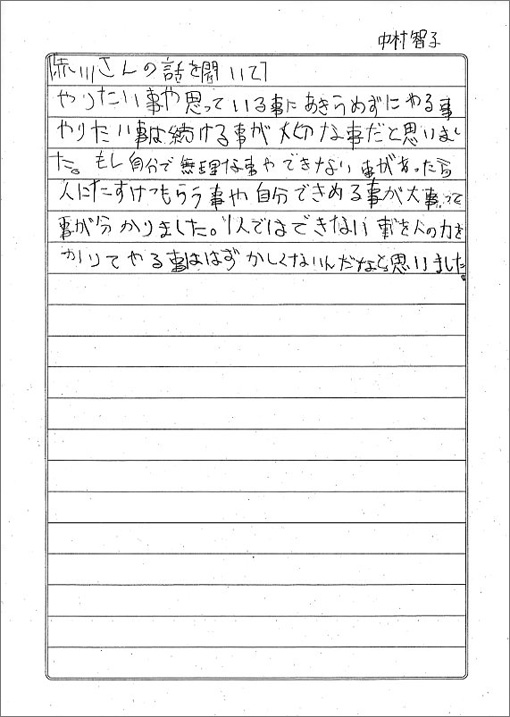 中村智子
「赤川さんの話を聞いて」
やりたい事や思っている事にあきらめずにやる事
やりたい事は続ける事が大切な事だと思いまし
た。もし自分で無理な事やできない事があったら
人にたすけてもらう事や自分できめる事が大事って
事が分かりました。1人ではできない事を人の力を
かりてやる事ははずかしくないんだなと思いました。